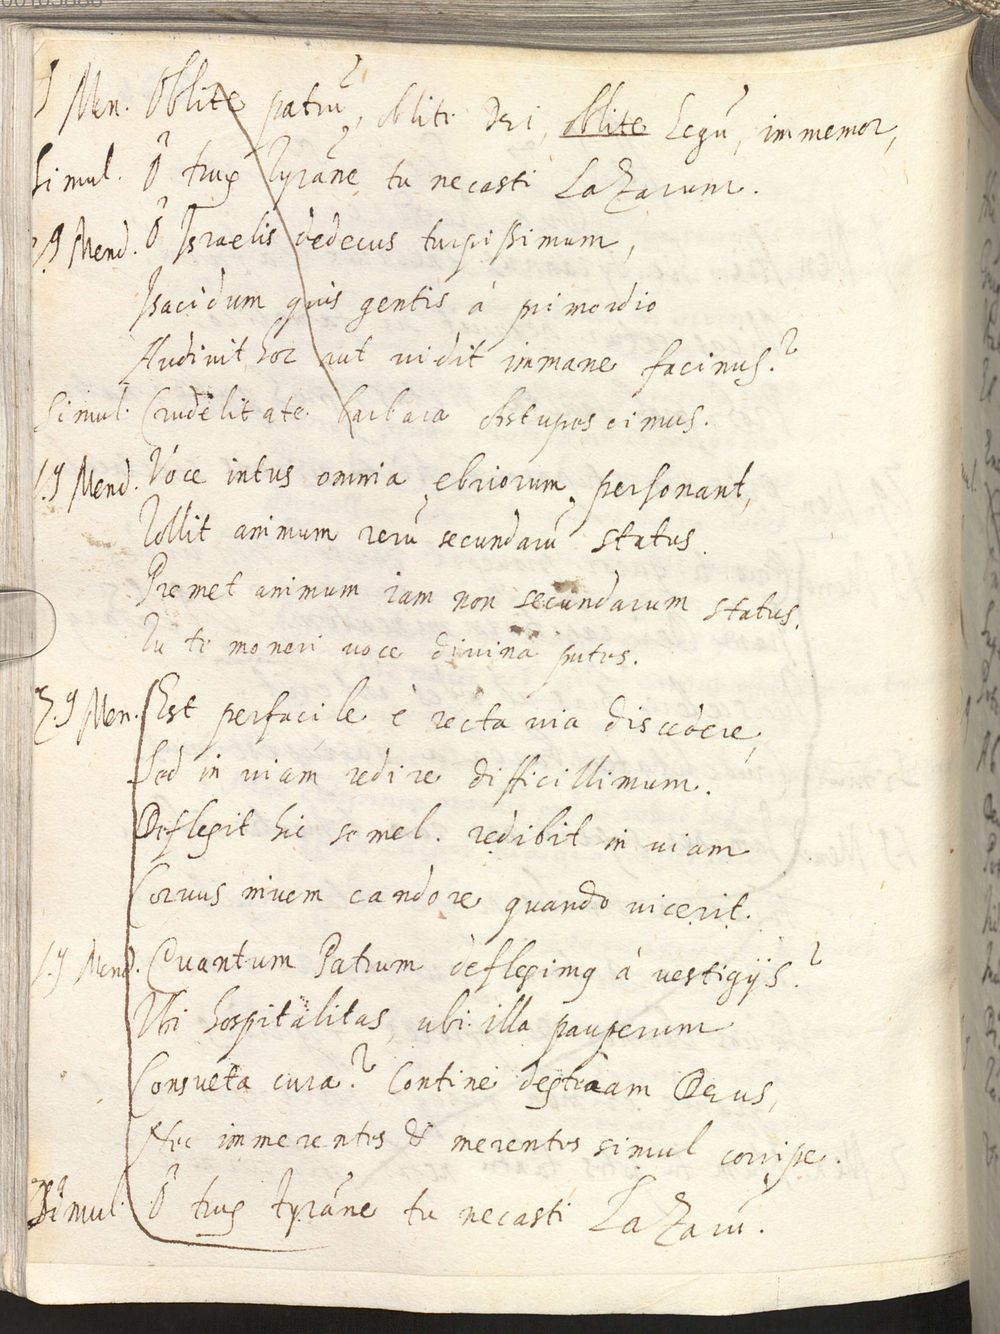 Men. Oblite patrũ, oblite Dei, oblite Legũ, immemor,
Simul. Ô trux Tyrãne tu necasti Lazarum.
Mend. Ô Israelis dedecus turpissimum,
Isacidum quis gentis à primordio
Audivit hoc aut vidit immane facinus?
Simul. Crudelitate barbara obstupescimus.
1.9 Mend. Voce intus omnia ebriorum personant,
Tollit animum rerũ secundarũ status.
Premet animum iam non secundarum status.
Tu te moneri voce divina putes.
3.9 Men. Est perfacile è recta via discedere,
Sed in viam redire difficillimum.
Deflexit hic semel. redibit in viam
Corvus nivem candore quando vicerit.
1.9 Mend. Quantum Patrum defleximꝰ à vestigijs?
Ubi hospitalitas, ubi illa pauperum
Consueta cura? Contine dextraam Deus,
Nec immerentes & merentes simul corripe.
Simul. Ô trux tyrãne tu necasti Lazarũ.